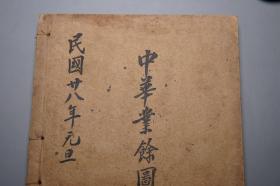 中華業餘圖
民國廿八年元旦